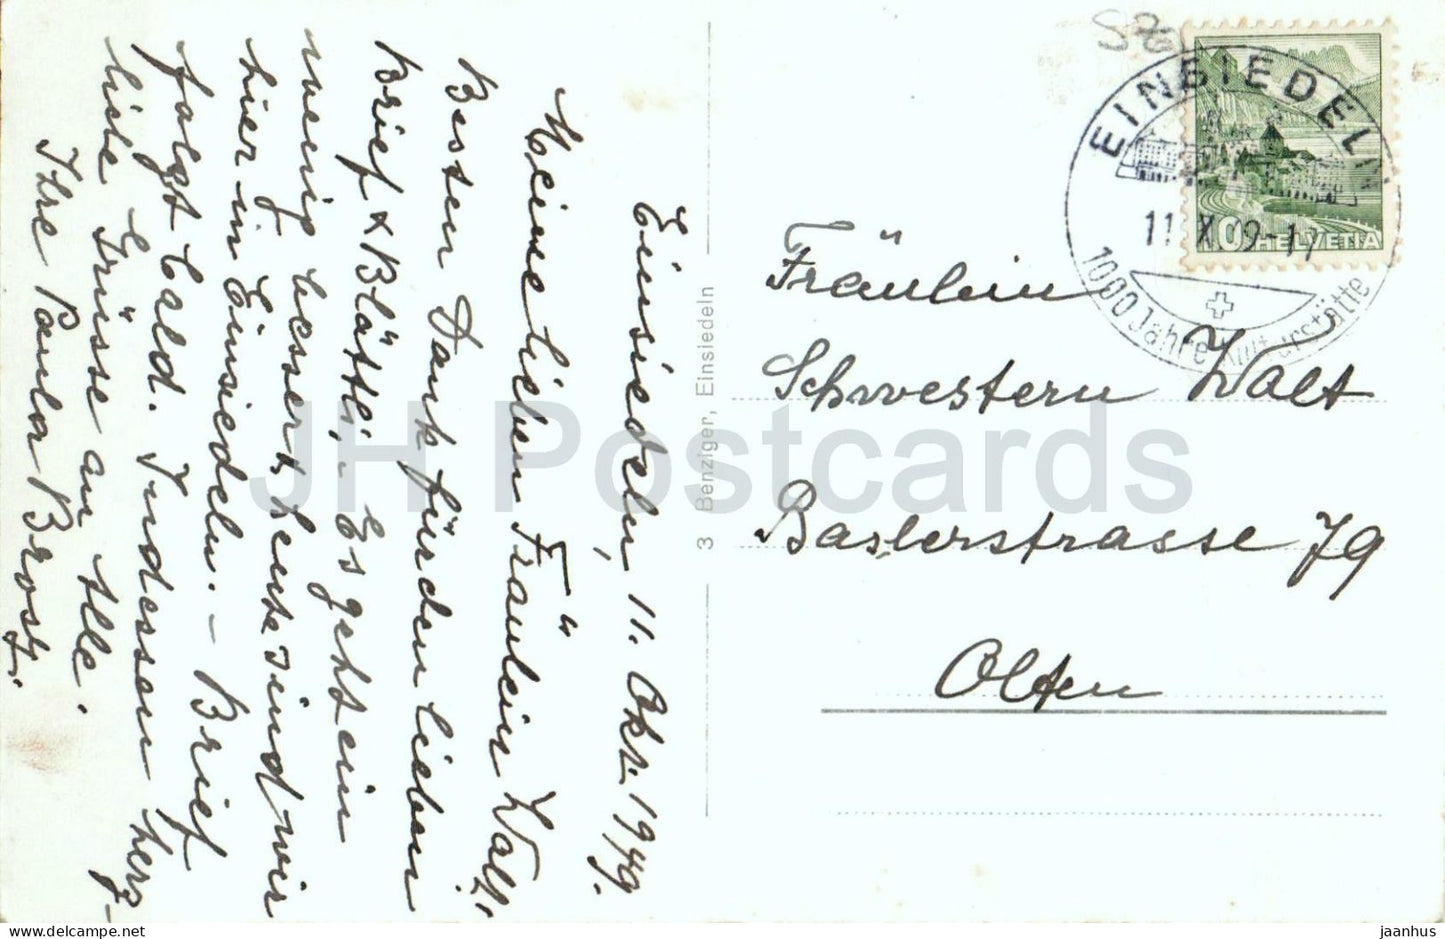 Einsiedeln, 11. Okt. 1949.
Meine lieben Fräulein Walt!
Besten Dank für den lieben
Brief & Blättli. Es geht ein
wenig besser & heute sind wir
hier in Einsiedeln. – Brief
folgt bald. Indessen herz-
liche Grüsse an Alle.
Ihre Paula Brost.
3 Benziger, Einsiedeln
S 76
EINSIEDELN
11. X. 49-17
1000 Jahre Kulturstätte
10 HELVETIA
Fräulein
Schwestern Walt
Baslerstrasse 79
Olten
JH Postcards
jaanhus